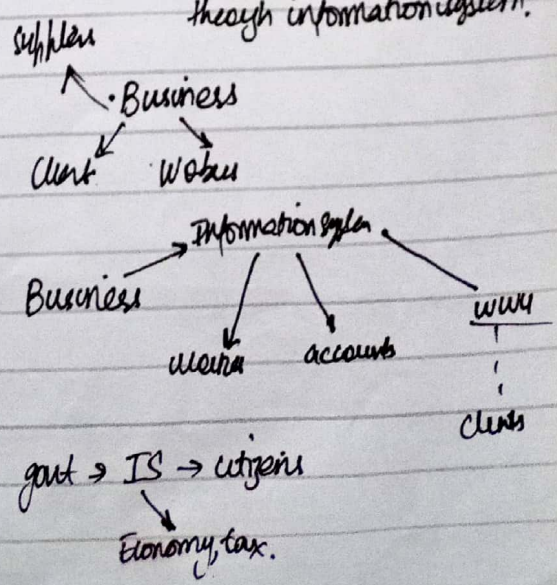 through information system.
suppliers
Business
Client
Information system
Business
www
accounts
Clients
govt → IS → citizens
Economy, tax.